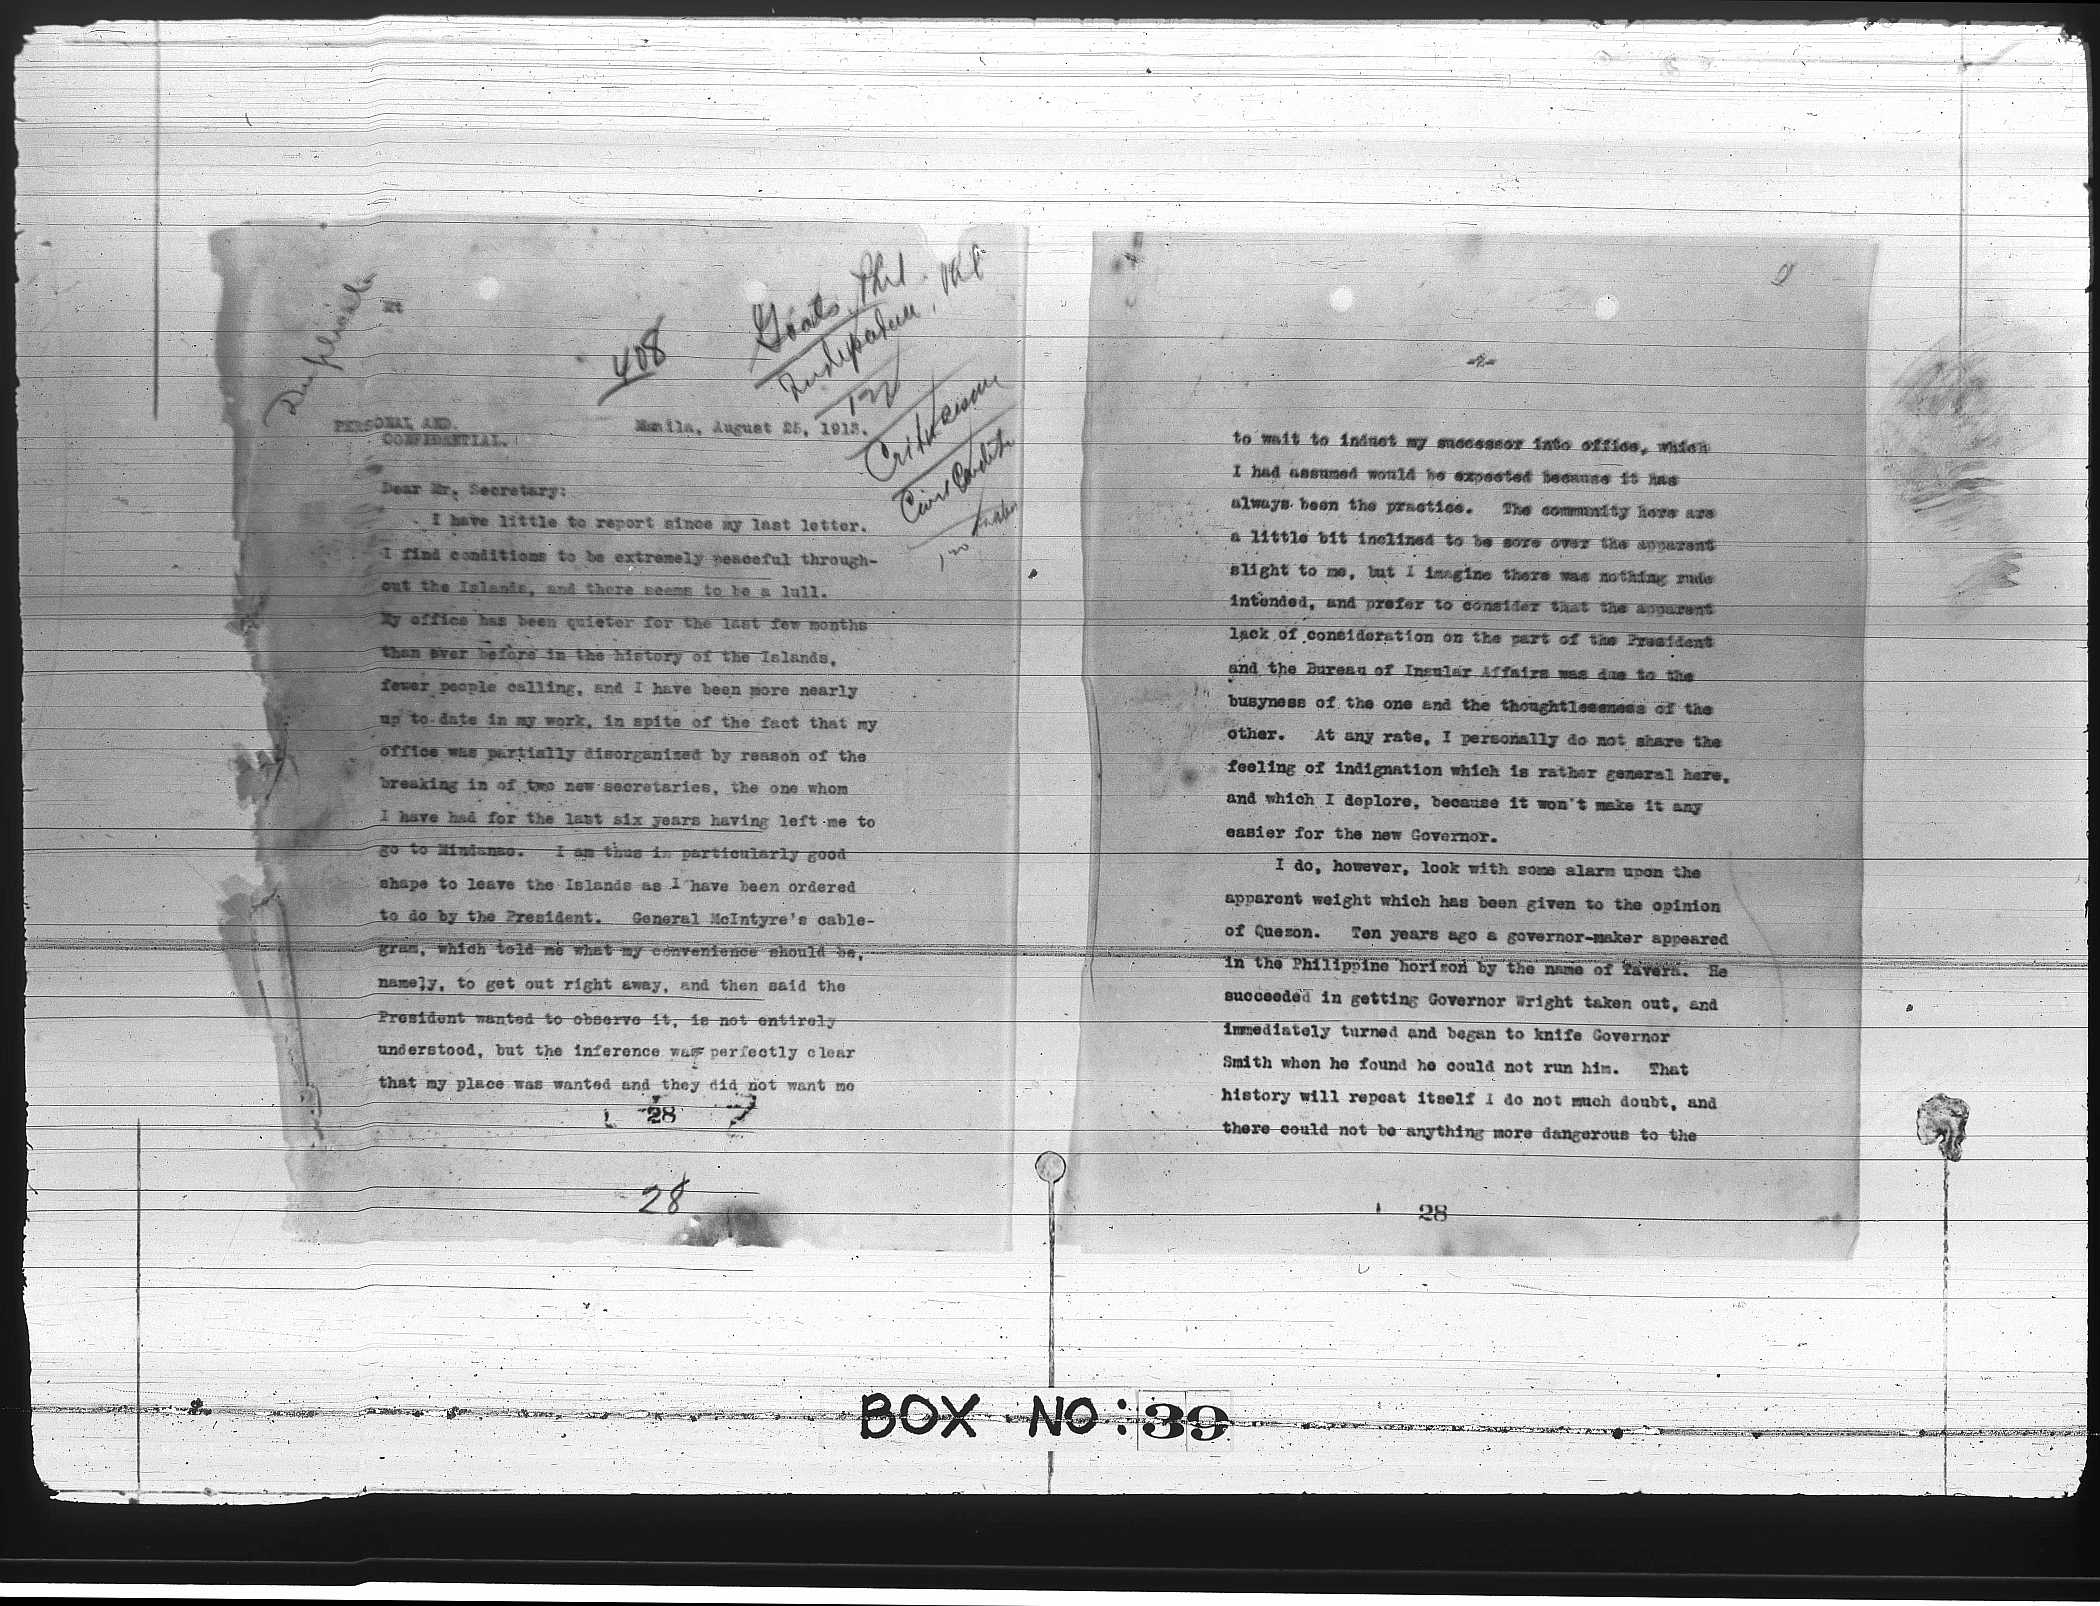 Duplicate
408
PERSONAL AND
CONFIDENTIAL.
Manila, August 25, 1913.
Criticism
Dear Mr. Secretary:
I have little to report since my last letter.
I find conditions to be extremely peaceful through-
out the Islands, and there seems to be a lull.
My office has been quieter for the last few months
than ever before in the history of the Islands,
fewer people calling, and I have been more nearly
up to date in my work, in spite of the fact that my
office was partially disorganized by reason of the
breaking in of two new secretaries, the one whom
I have had for the last six years having left me to
go to Mindanao. I am thus in particularly good
shape to leave the Islands as I have been ordered
to do by the President. General McIntyre's cable-
gram, which told me what my convenience should be,
namely, to get out right away, and then said the
President wanted to observe it, is not entirely
understood, but the inference was perfectly clear
that my place was wanted and they did not want me
28
28
-2-
to wait to induct my successor into office, which
I had assumed would be expected because it has
always been the practice. The community here are
a little bit inclined to be sore over the apparent
slight to me, but I imagine there was nothing rude
intended, and prefer to consider that the apparent
lack of consideration on the part of the President
and the Bureau of Insular Affairs was due to the
busyness of the one and the thoughtlessness of the
other. At any rate, I personally do not share the
feeling of indignation which is rather general here,
and which I deplore, because it won't make it any
easier for the new Governor.
I do, however, look with some alarm upon the
apparent weight which has been given to the opinion
of Quezon. Ten years ago a governor-maker appeared
in the Philippine horizon by the name of Tavera. He
succeeded in getting Governor Wright taken out, and
immediately turned and began to knife Governor
Smith when he found he could not run him. That
history will repeat itself I do not much doubt, and
there could not be anything more dangerous to the
28
BOX NO: 39